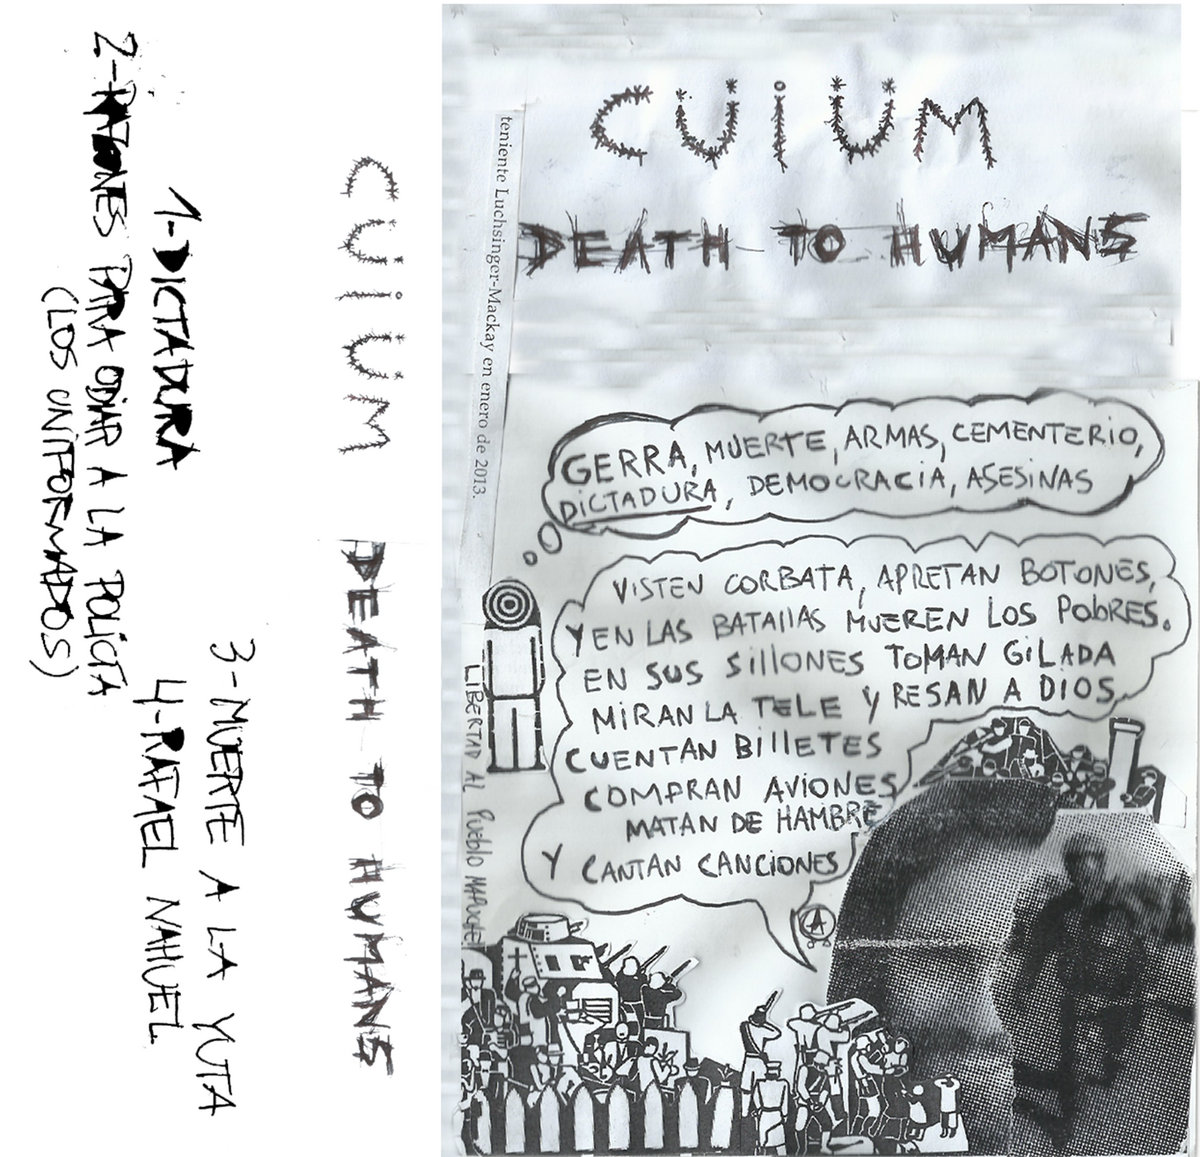 2-RAZONES PARA ODIAR A LA POLICÍA
(LOS UNIFORMADOS)
1-DICTADURA
3-MUERTE A LA YUTA
4-RAFAEL NAHUEL
CÜiÜM DEATH TO HUMANS
CÜiÜM
DEATH TO HUMANS
teniente Luchsinger-Mackay en enero de 2013.
GERRA, MUERTE, ARMAS, CEMENTERiO,
DiCTADURA, DEMOCRACiA, ASESiNAS
ViSTEN CORBATA, APRETAN BOTONES,
Y EN LAS BATAllAS MUEREN LOS PObRES.
EN SUS SillONES TOMAN GiLADA
MiRAN LA TELE Y RESAN A DIOS
CUENTAN BillETES
COMPRAN AViONES
MATAN DE HAMBRE
Y CANTAN CANCiONES
LIBERTAD AL PUEblO MAPUCHE
A